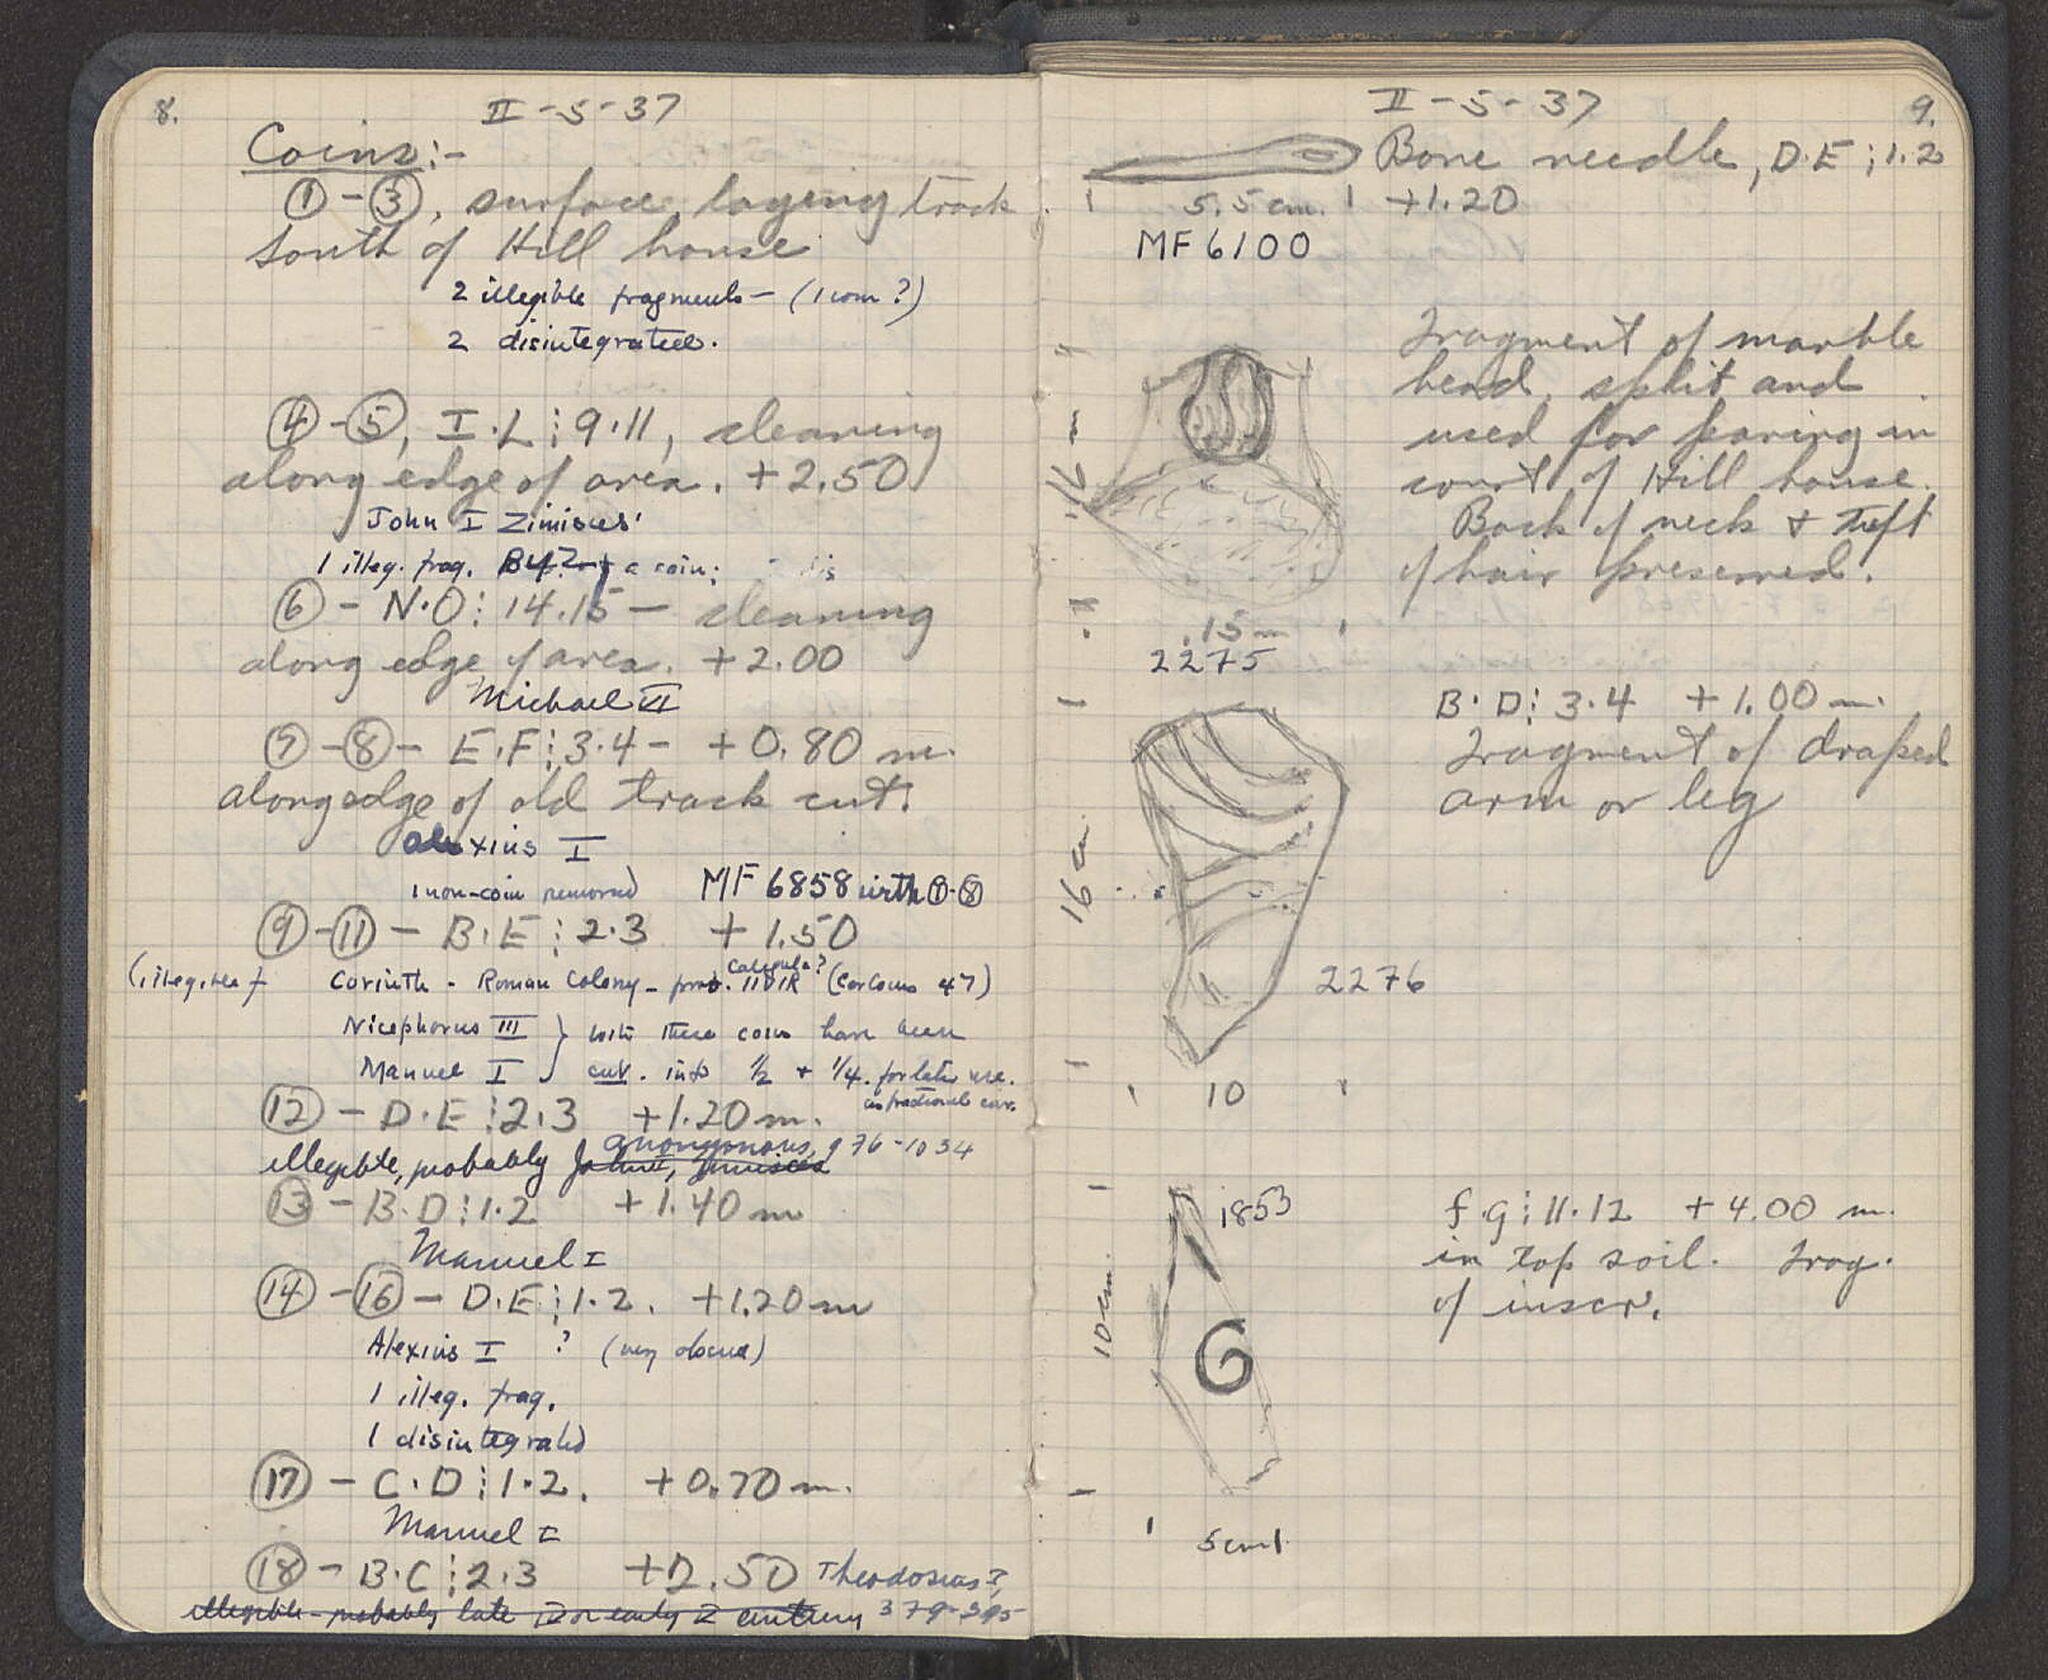 8.
II-5-37
Coins:-
① - ③, surface, laying track
south of Hill house
2 illegible fragments - (1 coin?)
2 disintegrated.
④ - ⑤, I.L ⋮ 9.11, cleaning
along edge of area. +2.50
John I Zimisces
1 illeg. frag. a coin;
⑥ - N.O ⋮ 14.15 - cleaning
along edge of area. +2.00
Michael VII
⑦ - ⑧ - E.F ⋮ 3.4 - +0.80 m.
along edge of old track cut.
Alexius I
1 non-coin removed MF 6858 with ⑦-⑧
⑨ - ⑪ - B.E ⋮ 2.3 +1.50
Caligula?
(illegible) Corinth - Roman Colony - prob. IIVIR 47)
Nicephorus III } with these coins have been
Manuel I } cut. into 1/2 + 1/4. for later use.
as fractional
⑫ - D.E ⋮ 2.3 +1.20 m.
anonymous, 976-1034
illegible, probably John I, Zimisces
⑬ - B.D ⋮ 1.2 +1.40 m
Manuel I
⑭ - ⑯ - D.E ⋮ 1.2. +1.20 m
Alexius I ? (very obscure)
1 illeg. frag.
1 disintegrated
⑰ - C.D ⋮ 1.2. +0.70 m.
Manuel I
⑱ - B.C ⋮ 2.3 +2.50 Theodosius I,
illegible - probably late IV or early V century 379-395
II-5-37
9.
Bone needle, D.E ⋮ 1.2
5.5 cm. +1.20
MF 6100
Fragment of marble
head, split and
used for paving in
court of Hill house.
Back of neck & tuft
of hair preserved.
.15 m
2275
B.D ⋮ 3.4 +1.00 m.
Fragment of draped
arm or leg
16 cm.
2276
10
1853
f.g ⋮ 11.12 +4.00 m.
in top soil. Frag.
of inscr.
10 cm.
G
5 cm